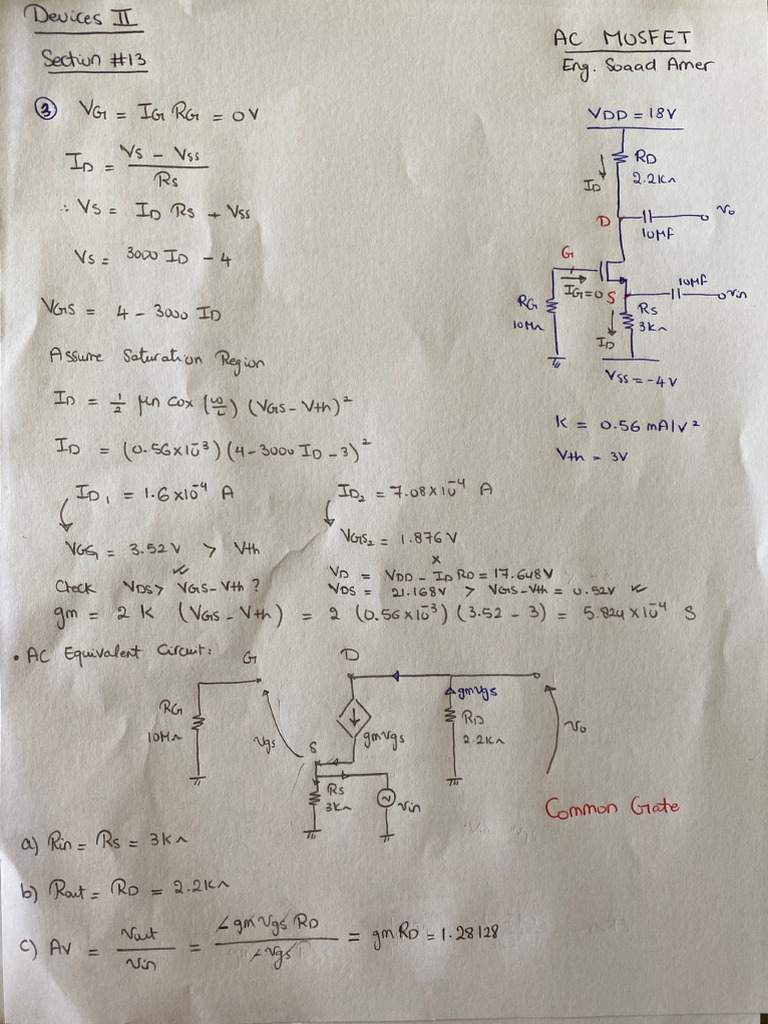 Devices II
Section #13
AC MOSFET
Eng. Soaad Amer
③ VG = IG RG = 0V
ID = (VS - VSS) / RS
∴ VS = ID RS + VSS
VS = 3000 ID - 4
VGS = 4 - 3000 ID
Assume Saturation Region
ID = 1/2 μn Cox (W/L) (VGS - Vth)²
ID = (0.56×10⁻³) (4 - 3000 ID - 3)²
ID1 = 1.6×10⁻⁴ A
ID2 = 7.08×10⁻⁴ A
VGS1 = 3.52V > Vth
VGS2 = 1.876 V
x
Check VDS > VGS - Vth ?
VD = VDD - ID RD = 17.648V
VDS = 21.168V > VGS - Vth = 0.52V
gm = 2 K (VGS - Vth) = 2 (0.56×10⁻³) (3.52 - 3) = 5.824×10⁻⁴ S
VDD = 18V
RD
2.2KΩ
ID
D
10MF
vo
G
IG=0
S
10MF
vin
RG
10MΩ
RS
3KΩ
ID
VSS = -4V
K = 0.56 mA/V²
Vth = 3V
• AC Equivalent Circuit:
G
D
RG
10MΩ
vgs
S
gmvgs
gmvgs
RD
2.2KΩ
vo
RS
3KΩ
vin
Common Gate
a) Rin = RS = 3KΩ
b) Rout = RD = 2.2KΩ
c) AV = vout / vin = -gm vgs RD / -vgs = gm RD = 1.28128